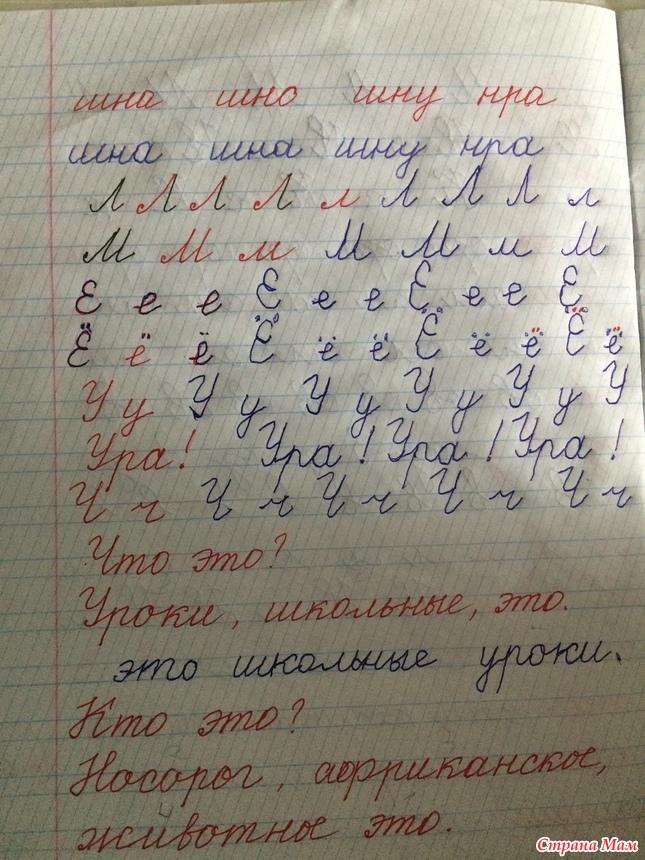 шна шно шну нра
шна шна шну нра
Л Л Л Л л Л Л Л л
М М м М М м М
Е е е Е е е Е е е Е
Ё ё ё Ё ё ё Ё ё ё Ё ё
У у У у У у У у У у У
Ура! Ура! Ура! Ура!
Ч ч Ч ч Ч ч Ч ч Ч ч
Что это?
Уроки, школьные, это.
это школьные уроки.
Кто это?
Носорог, африканское,
животное это.
Страна Мам